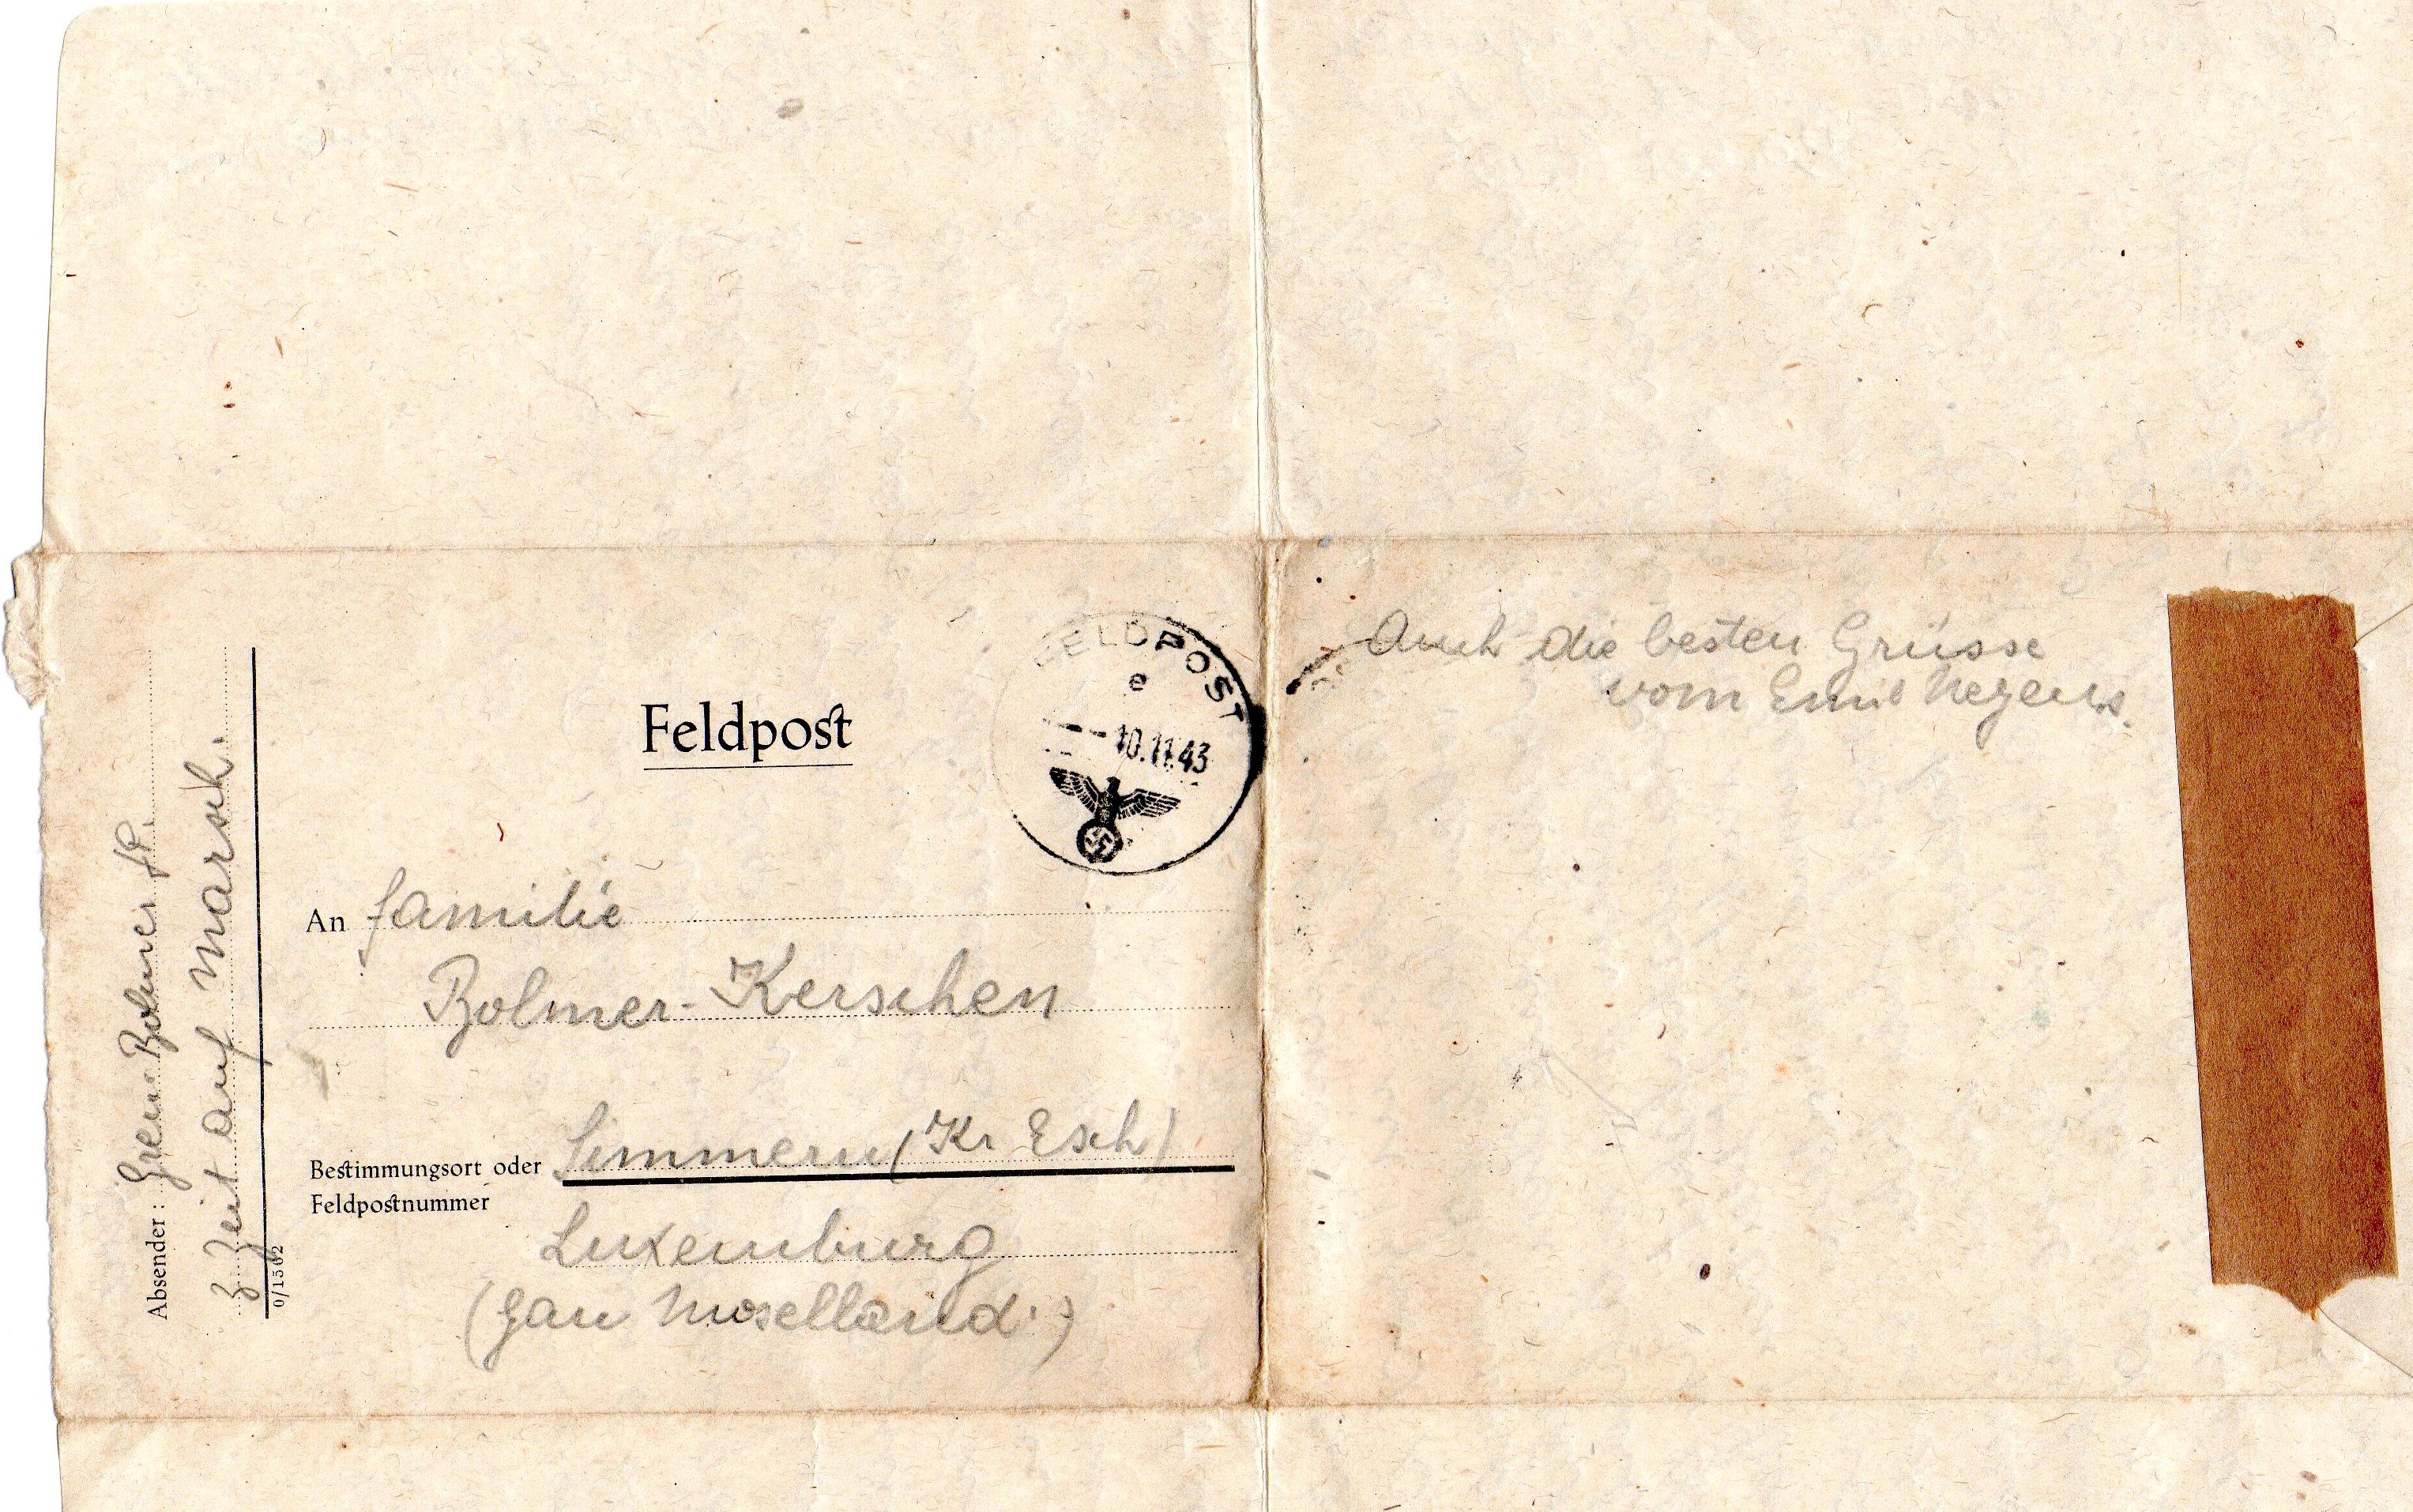 Absender: Gren. Bolmer JP.
z Zeit auf Marsch.
0/1502
Feldpost
FELDPOST
e
10.11.43
An familie
Bolmer-Kerschen
Bestimmungsort oder Simmern (Kr Esch)
Feldpostnummer
Luxemburg
(Gau Moselland.)
Auch die besten Grüsse
vom Emil